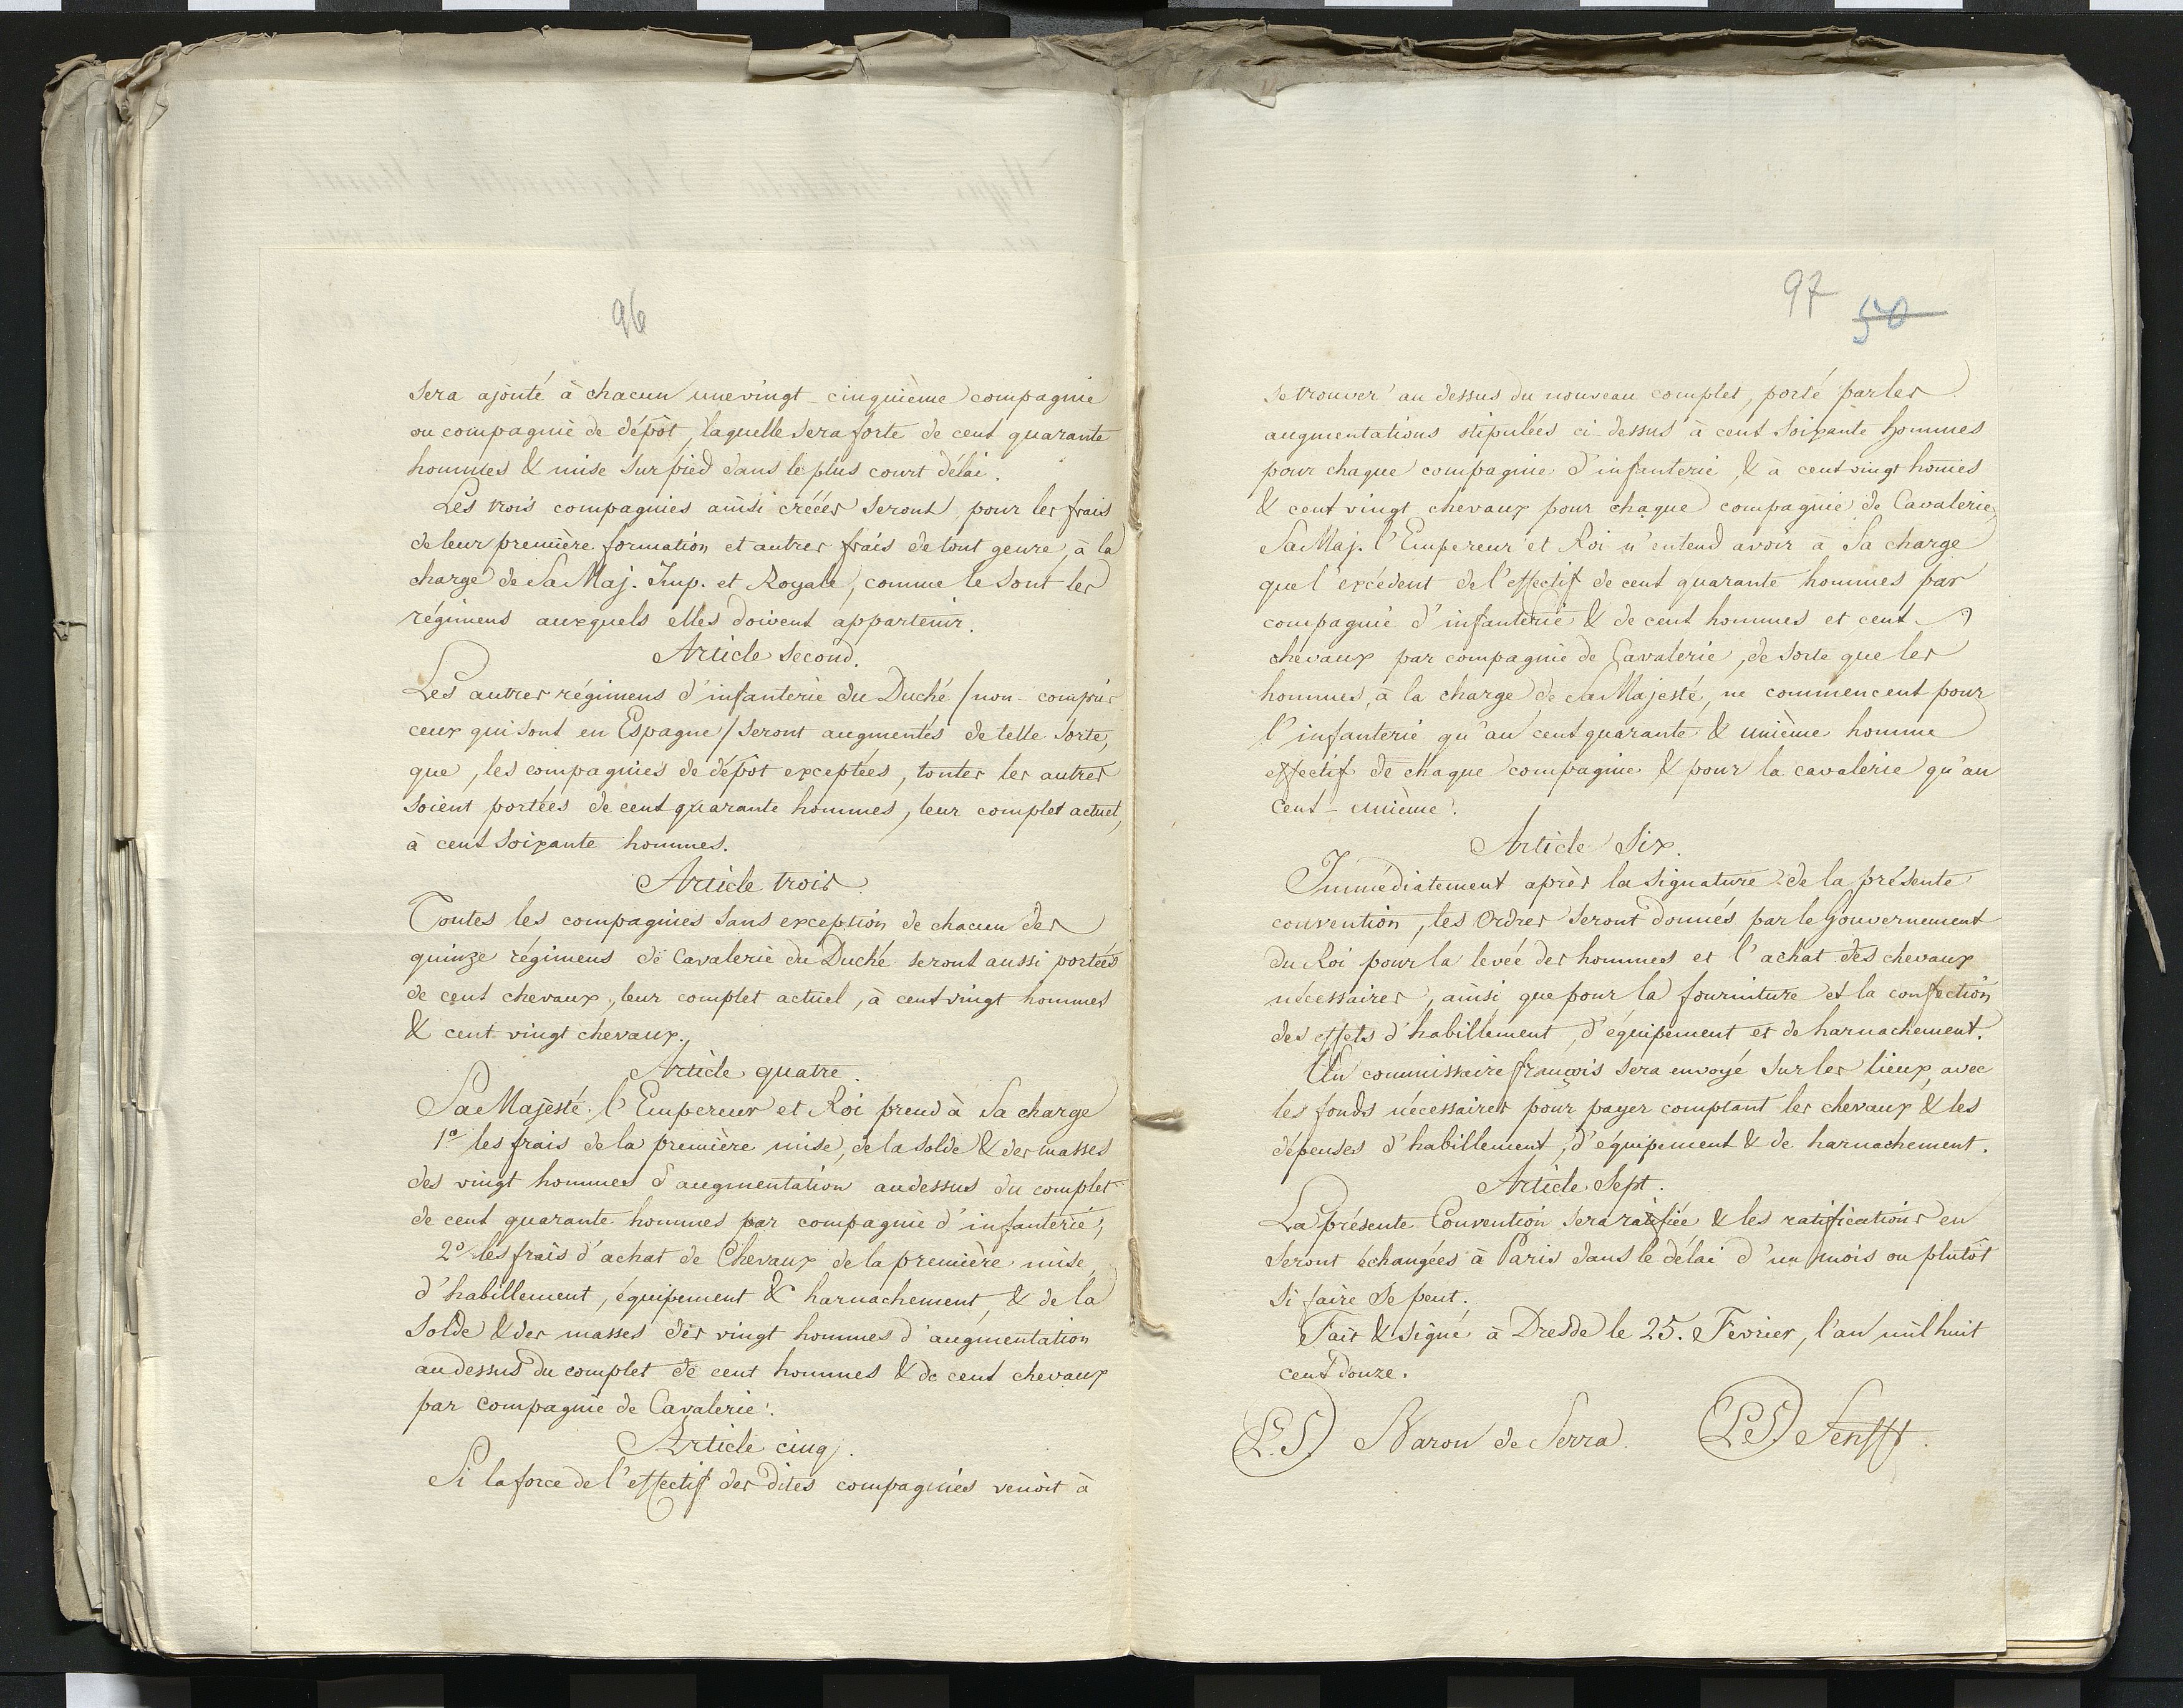 96
sera ajouté à chacun une vingt-cinquième compagnie
ou compagnie de dépôt, laquelle sera forte de cent quarante
hommes & mise sur pied dans le plus court délai.
Les trois compagnies ainsi créées seront, pour les frais
de leur première formation et autres frais de tout genre, à la
charge de Sa Maj. Imp. et Royale, comme le sont les
régimens auxquels elles doivent appartenir.
Article second.
Les autres régimens d'infanterie du Duché /non-compris
ceux qui sont en Espagne/ seront augmentés de telle sorte,
que, les compagnies de dépôt exceptées, toutes les autres
soient portées de cent quarante hommes, leur complet actuel,
à cent soixante hommes.
Article trois.
Toutes les compagnies sans exception de chacun des
quinze régimens de Cavalerie du Duché seront aussi portées
de cent chevaux, leur complet actuel, à cent vingt hommes
& cent vingt chevaux.
Article quatre.
Sa Majesté l'Empereur et Roi prend à Sa charge
1º les frais de la première mise, de la solde & des masses
des vingt hommes d'augmentation audessus du complet
de cent quarante hommes par compagnie d'infanterie;
2º les frais d'achat de Chevaux de la première mise
d'habillement, équipement & harnachement, & de la
solde & des masses des vingt hommes d'augmentation
au dessus du complet de cent hommes & de cent chevaux
par compagnie de Cavalerie.
Article cinq.
Si la force de l'effectif des dites compagnies venoit à
97
50
se trouver au dessus du nouveau complet, porté par les
augmentations stipulées ci dessus à cent soixante hommes
pour chaque compagnie d'infanterie, & à cent vingt homes
& cent vingt chevaux pour chaque compagnie de Cavalerie,
Sa Maj. l'Empereur et Roi n'entend avoir à Sa charge
que l'excédent de l'effectif de cent quarante hommes par
compagnie d'infanterie & de cent hommes et cent
chevaux par compagnie de Cavalerie, de sorte que les
hommes, à la charge de Sa Majesté, ne commencent pour
l'infanterie qu'au cent quarante & unième homme
effectif de chaque compagnie & pour la cavalerie qu'au
cent-unième.
Article Six.
Immédiatement après la signature de la présente
convention, les Ordres seront donnés par le Gouvernement
du Roi pour la levée des hommes et l'achat des chevaux
nécessaires, ainsi que pour la fourniture et la confection
des effets d'habillement, d'équipement et de harnachement.
Un commissaire françois sera envoyé sur les lieux, avec
les fonds nécessaires pour payer comptant les chevaux & les
dépenses d'habillement, d'équipement & de harnachement.
Article Sept.
La présente Convention sera ratifiée & les ratifications en
seront échangées à Paris dans le délai d'un mois ou plutôt
si faire se peut.
Fait & signé à Dresde le 25. Février, l'an mil huit
cent douze.
(L.S.) Baron de Serra. (L.S.) Senfft.